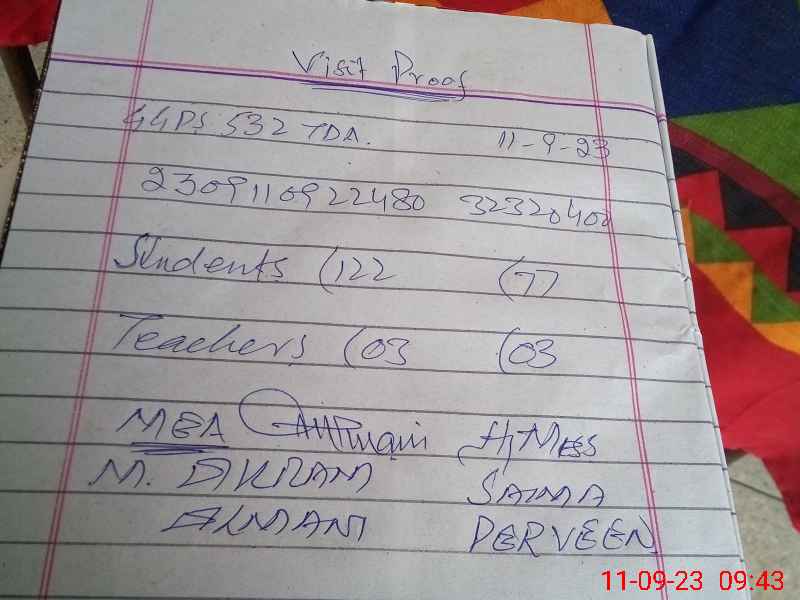 Visit Proof
GGPS 532 TDA. 11-9-23
2309110922480 32320400
Students (122 (77
Teachers (03 (03
MEA H/Mess
M. IKRAM SAIMA
PERVEEN
11-09-23 09:43